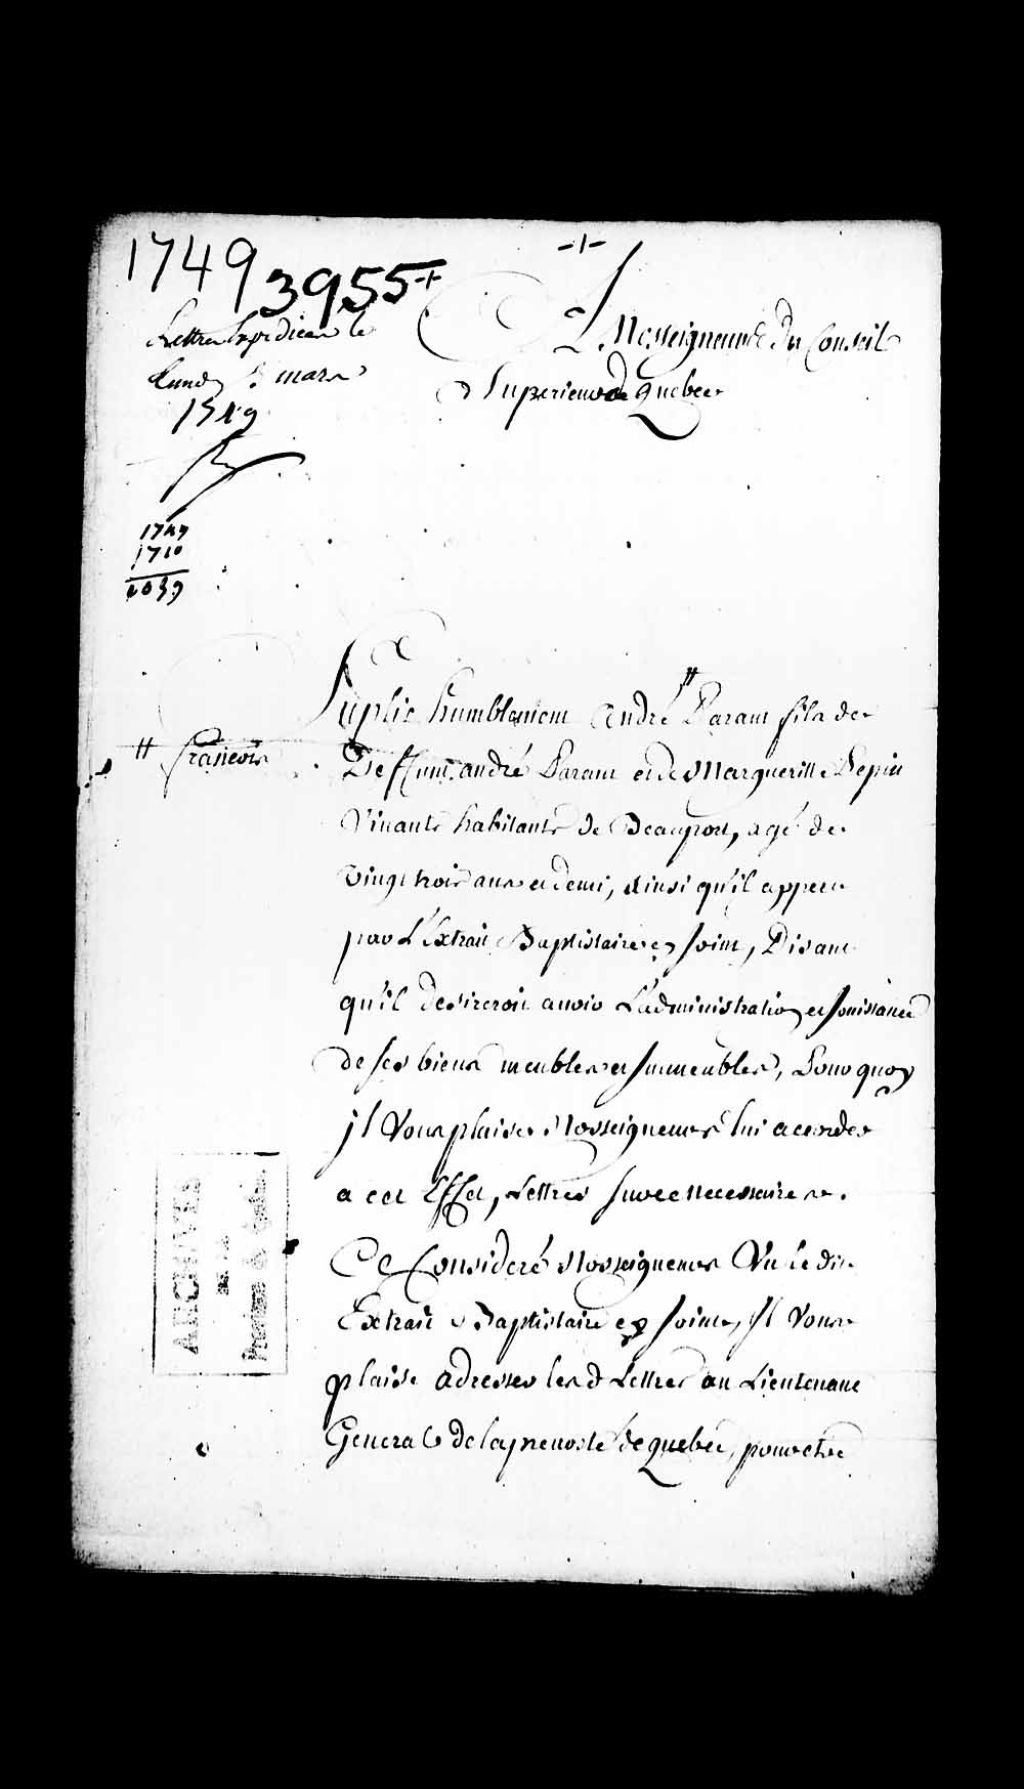 1749
3955
-1-
Lettres Expediees le
lundy 3 mars
1749
1749
1710
2039
A Nosseigneurs du Conseil
Superieur de Quebec
Suplie humblement André # Parant fils de
# françois
Deffunt andré Parant et de Margueritte Pepin
Vivants habitants de Beauport, agé de
vingt trois ans et demi, ainsi qu'il appert
par L'Extrait Baptistaire cy joint, Disant
qu'il desireroit avoir L'administration et Jouissance
de ses biens meubles et Immeubles, Pourquoy
jl Vous plaise Nosseigneurs lui accorder
a cet Effet, Lettres sur ce necessaires.
Ce Consideré Nosseigneurs Vu le dit
Extrait Baptistaire cy joint, Il Vous
plaise adresser lesd Lettres au Lieutenant
General de la prevosté de quebec, pour etre
ARCHIVES
DE LA
Province de Québec